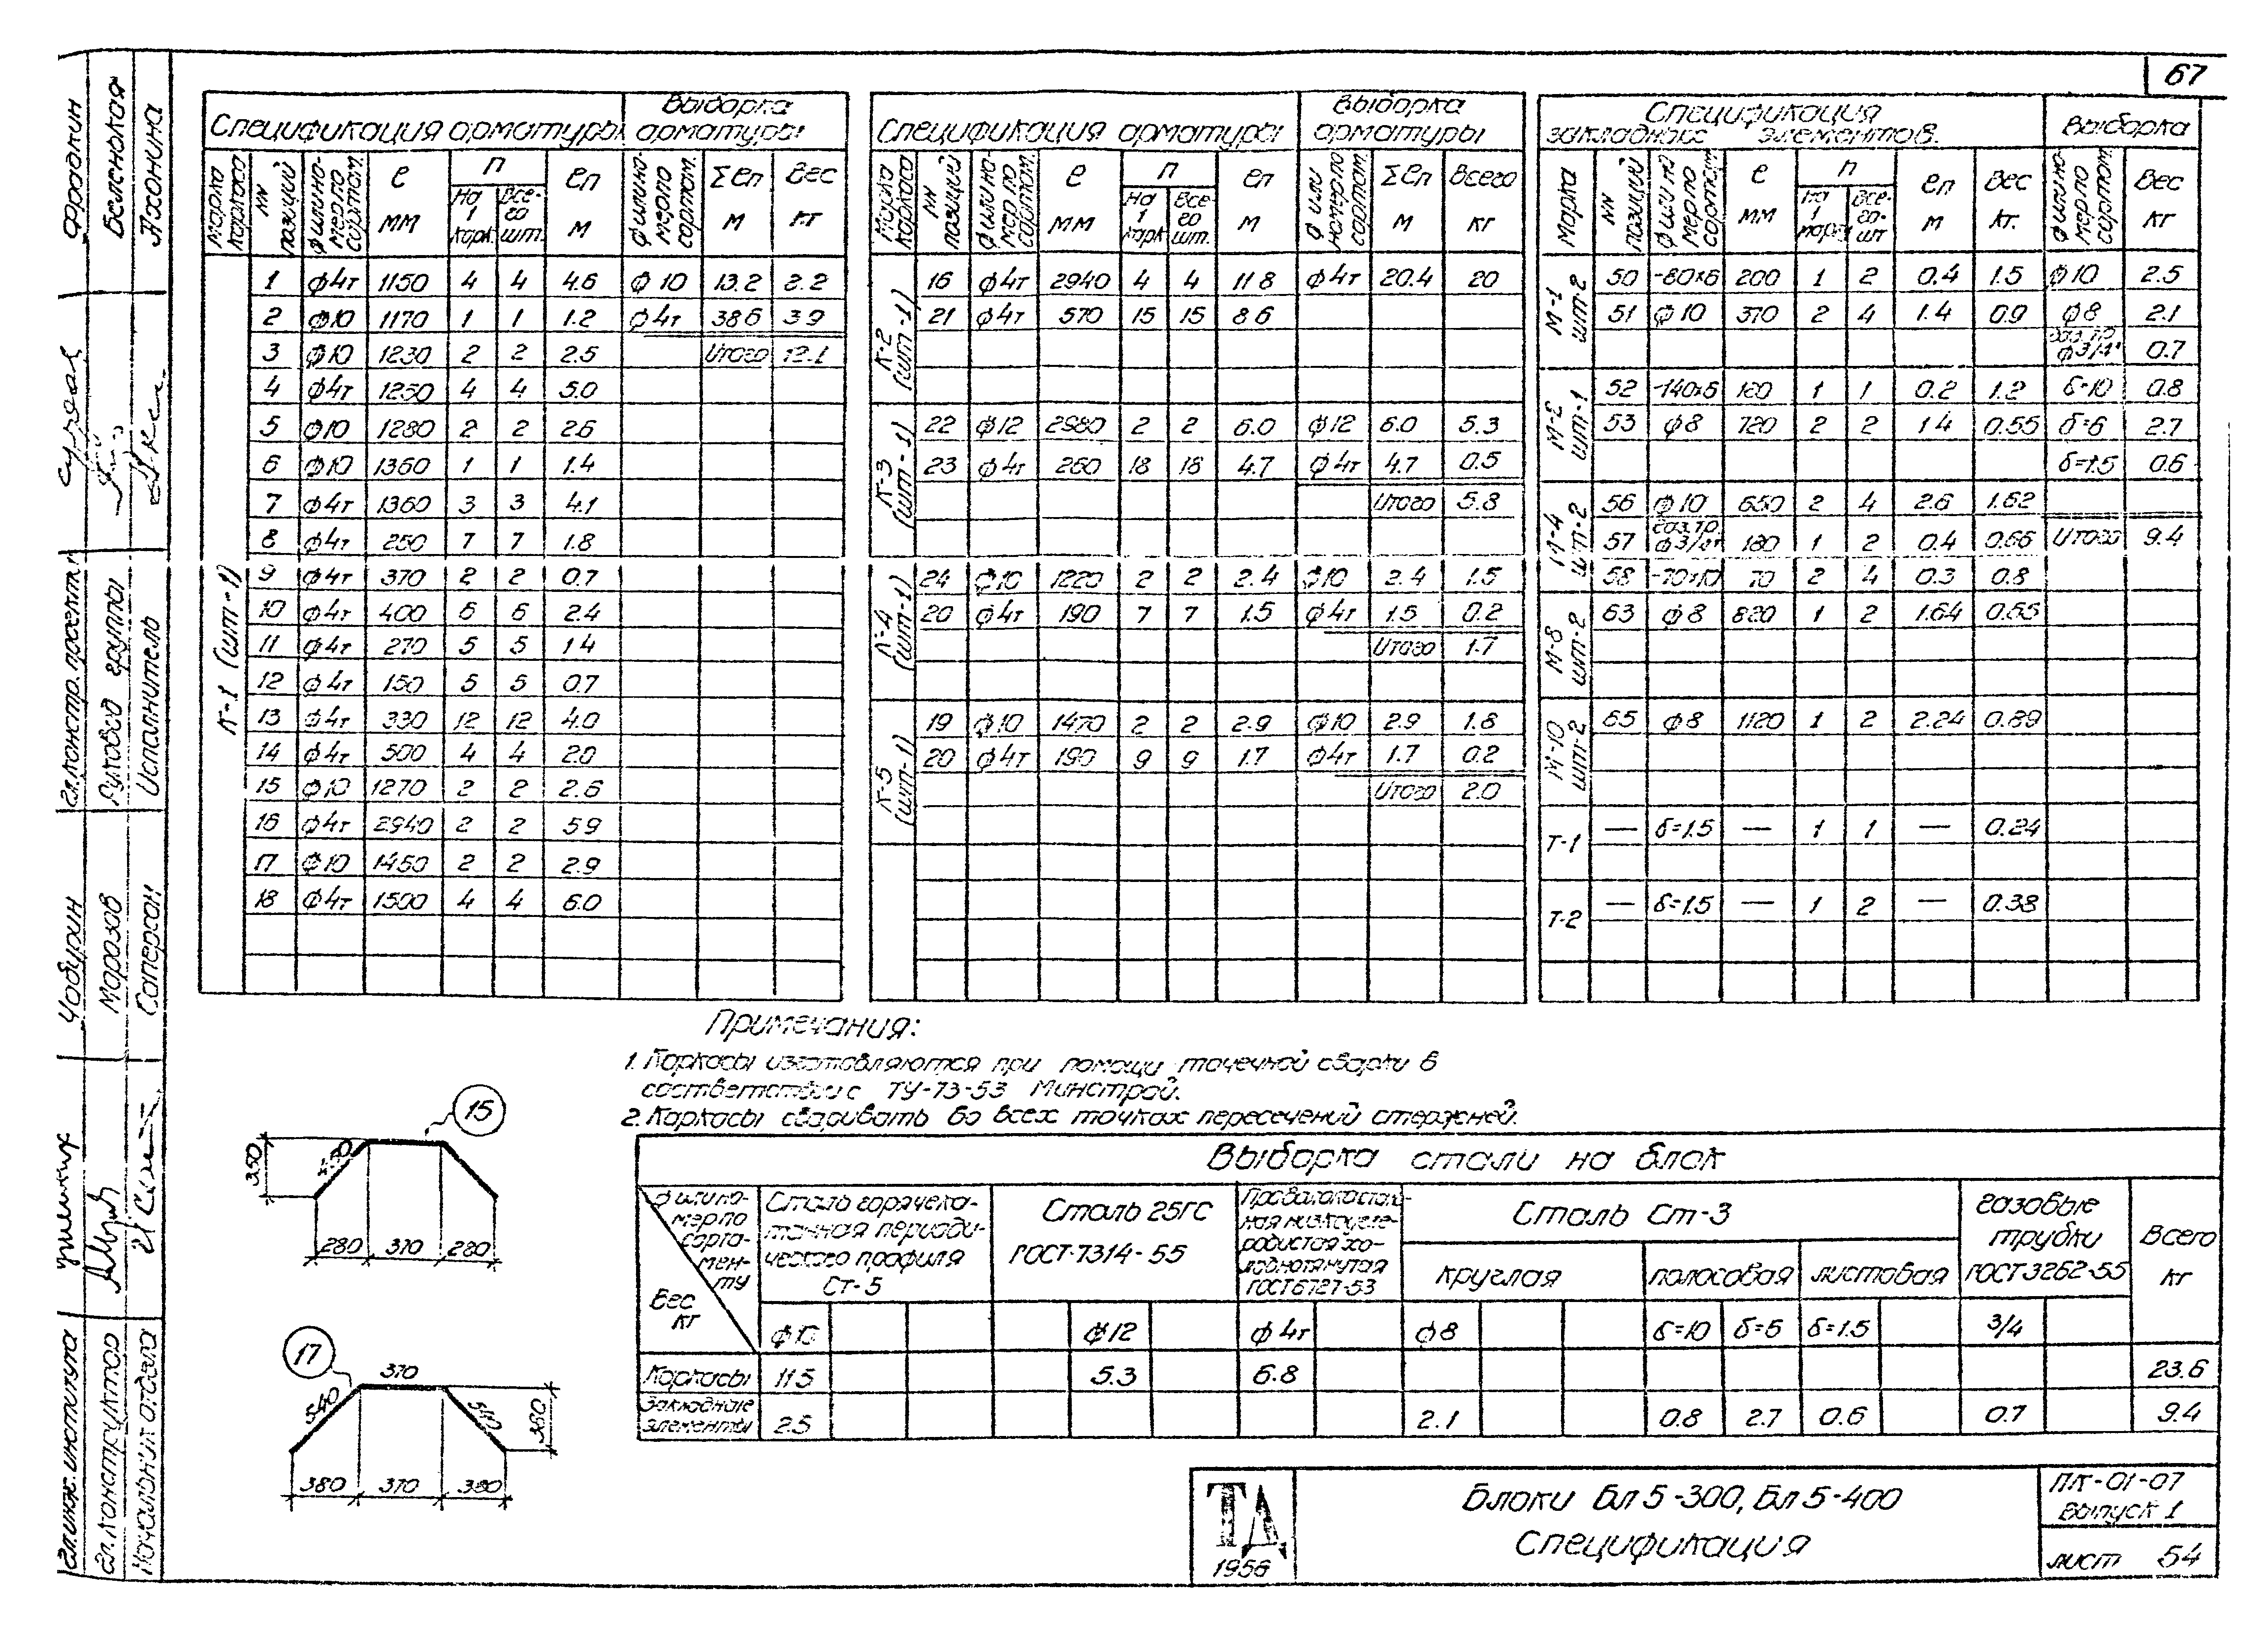 67
Спецификация арматуры Выборка арматуры
Марка каркаса | NN позиций | ф или номер по сортам. | ℓ мм | n На 1 карк. | Всего шт. | ℓn м | ф или номер по сортам. | Σℓn м | Вес кг
К-1 (шт-1)
1 ф4т 1150 4 4 4.6 ф10 13.2 8.2
2 ф10 1170 1 1 1.2 ф4т 38.6 3.9
3 ф10 1230 2 2 2.5 Итого 12.1
4 ф4т 1250 4 4 5.0
5 ф10 1280 2 2 2.6
6 ф10 1360 1 1 1.4
7 ф4т 1360 3 3 4.1
8 ф4т 250 7 7 1.8
9 ф4т 370 2 2 0.7
10 ф4т 400 6 6 2.4
11 ф4т 270 5 5 1.4
12 ф4т 150 5 5 0.7
13 ф4т 330 12 12 4.0
14 ф4т 500 4 4 2.0
15 ф10 1270 2 2 2.6
16 ф4т 2940 2 2 5.9
17 ф10 1450 2 2 2.9
18 ф4т 1500 4 4 6.0
Спецификация арматуры Выборка арматуры
Марка каркаса | NN позиций | ф или номер по сортам. | ℓ мм | n На 1 карк. | Всего шт. | ℓn м | ф или номер по сортам. | Σℓn м | Всего кг
К-2 (шт-1)
16 ф4т 2940 4 4 11.8 ф4т 20.4 20
21 ф4т 570 15 15 8.6
К-3 (шт-1)
22 ф12 2980 2 2 6.0 ф12 6.0 5.3
23 ф4т 260 18 18 4.7 ф4т 4.7 0.5
Итого 5.8
К-4 (шт-1)
24 ф10 1220 2 2 2.4 ф10 2.4 1.5
20 ф4т 190 7 7 1.5 ф4т 1.5 0.2
Итого 1.7
К-5 (шт-1)
19 ф10 1470 2 2 2.9 ф10 2.9 1.8
20 ф4т 190 9 9 1.7 ф4т 1.7 0.2
Итого 2.0
Спецификация закладных элементов. Выборка
Марка | NN позиций | ф или номер по сортам. | ℓ мм | n На 1 марку | Всего шт | ℓn м | Вес кг. | ф или номер по сортам. | Вес кг
М-1 шт-2
50 -80х6 200 1 2 0.4 1.5 ф10 2.5
51 ф10 370 2 4 1.4 0.9 ф8 2.1
газ.тр. ф3/4" 0.7
М-2 шт-1
52 -140х6 180 1 1 0.2 1.2 δ=10 0.8
53 ф8 720 2 2 1.4 0.55 δ=6 2.7
δ=1.5 0.6
М-4 шт-2
56 ф10 650 2 4 2.6 1.62
57 газ.тр. ф3/4т 180 1 2 0.4 0.66 Итого 9.4
58 -70х10 70 2 4 0.3 0.8
М-8 шт-2
63 ф8 820 1 2 1.64 0.65
М-10 шт-2
65 ф8 1120 1 2 2.24 0.89
Т-1 — δ=1.5 — 1 1 — 0.24
Т-2 — δ=1.5 — 1 2 — 0.38
Примечания:
1. Каркасы изготовляются при помощи точечной сварки в
соответствии с ТУ-73-53 Минстрой.
2. Каркасы сваривать во всех точках пересечений стержней.
15
350
280 370 280
17
370
540 540
380
380 370 380
Выборка стали на блок
ф или номер по сортаменту Вес кг | Сталь горячекатанная периодического профиля Ст-5 | Сталь 25ГС ГОСТ-7314-55 | Проволока стальная низкоуглеродистая холоднотянутая ГОСТ 6727-53 | Сталь Ст-3 | Газовые трубки ГОСТ 3262-55 | Всего кг
круглая полосовая листовая
ф10 ф12 ф4т ф8 δ=10 δ=6 δ=1.5 3/4
Каркасы 11.5 5.3 6.8 23.6
Закладные элементы 2.5 2.1 0.8 2.7 0.6 0.7 9.4
ТД
1956
Блоки Бл5-300, Бл5-400
Спецификация
ПК-01-07
Выпуск 1
лист 54
Гл.инж.института Гл.констр.проекта Фрадкин
Гл.конструктор Морозов Руковод группы Беленькая
Начальник отдела Саперсон Исполнитель Яхонина
Чабурин